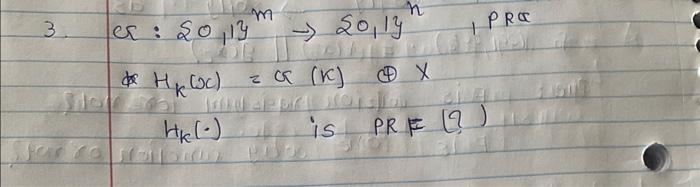 3. G : {0,1}^m → {0,1}^n , PRG
H_K(x) = G(K) ⊕ X
H_K(·) is PRF (?)